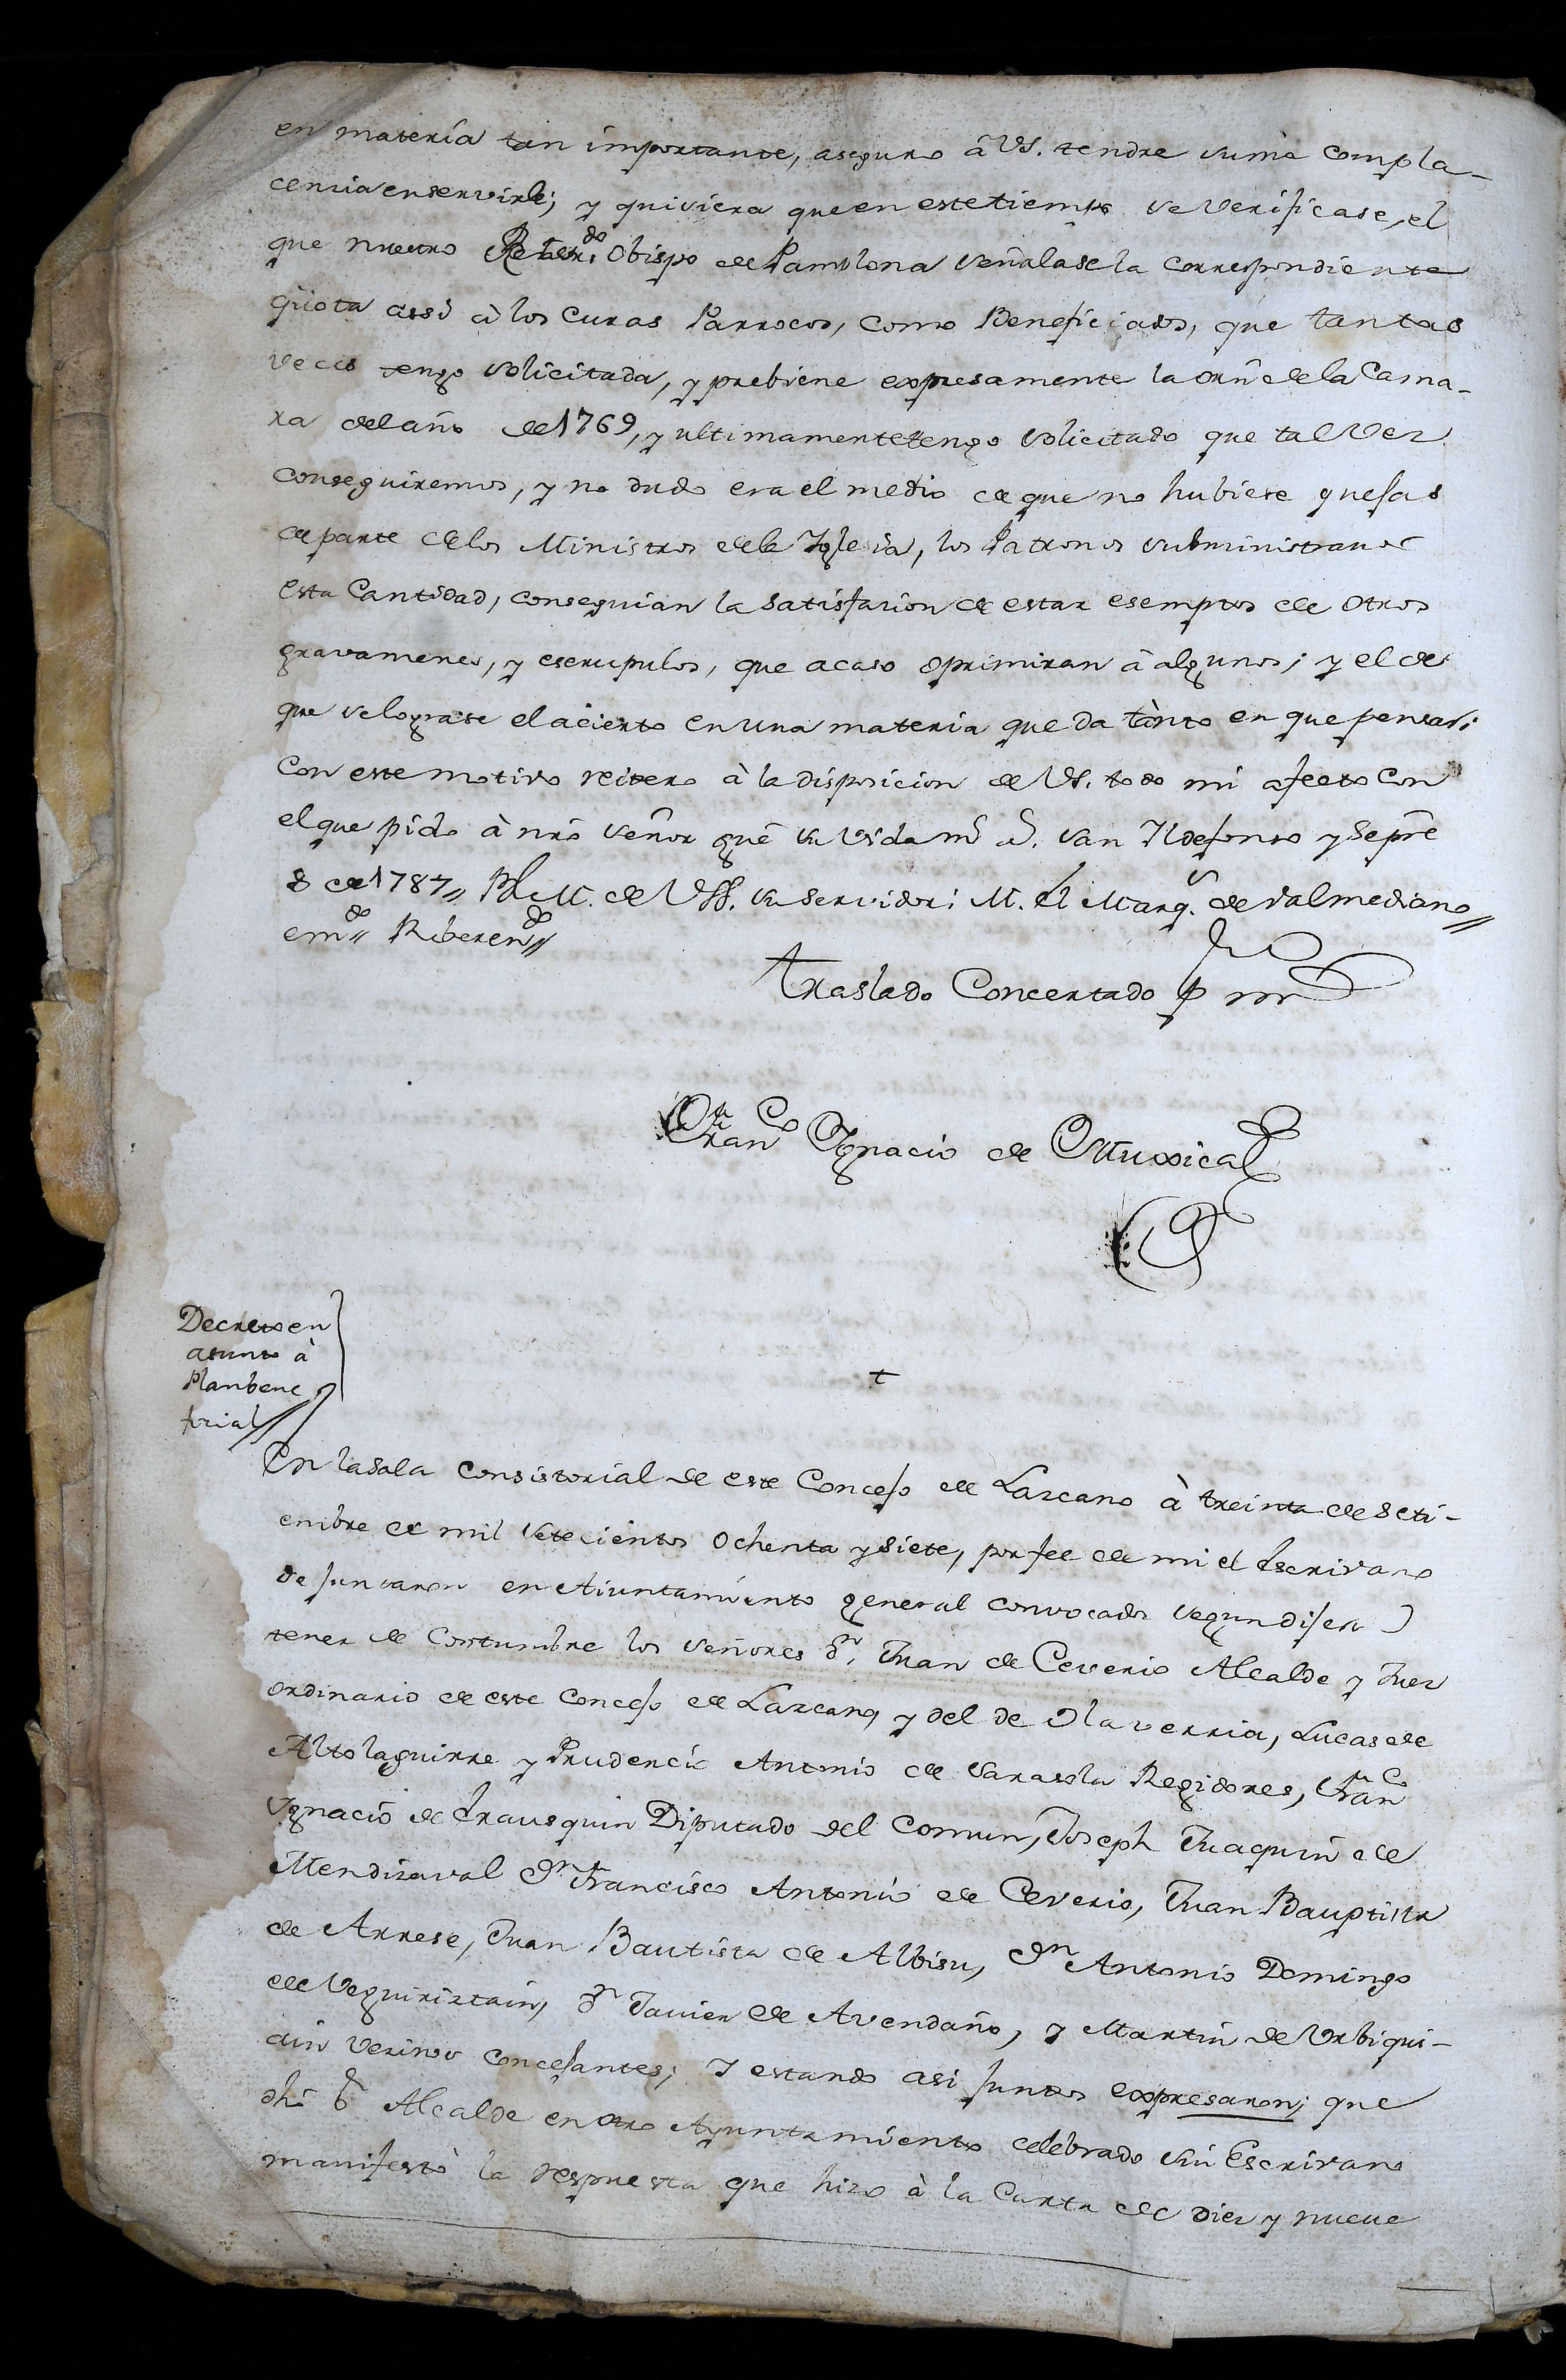 en materia tan importante, aseguro â VS. tendre suma compla-
cencia en servirle; y quisiera que en este tiempo se verificase, el
que nuestro Reberdo. Obispo de Pamplona señalase la correspondiente
qüota assi à los Curas Parrocos, como Beneficiados, que tantas
veces tengo solicitada, y prebiene expresamente la orn̄ de la Cama-
ra del año de 1769, y ultimamente tengo solicitado que tal Vez
conseguiremos, y no dudo era el medio de que no hubiese quejas
de parte de los Ministros de la Iglesia, los Patronos subministrando
esta Cantidad, conseguian la satisfacion de estar esemptos de otros
gravamenes, y escrupulos, que acaso oprimiran â algunos; y el de
que se lograse el acierto en una materia que da tanto en que pensar;
Con este motivo reitero à la disposicion de VS. todo mi afecto con
el que pido à nrō Señor guē su Vida ms. as. San Ildefonso y Sepre
8 de 1787,, BLM. de VSS. su servidor: M. El Marqs. de Valmediano,,
emdo,, Riberendo,,
Traslado Concertado p mi
Franco Ignacio de Muxica
Decreto en
asunto à
Plan bene
ficial,,
+
En la sala consistorial de este Concejo de Lazcano à treinta de Seti-
embre de mil setecientos ochenta y siete, por fee de mi el Escrivano
se juntaron en Aiuntamiento general convocados segun dijeron
tener de Costumbre los señores Dn. Juan de Ceverio Alcalde y Juez
ordinario de este Concejo de Lazcano, y del de Olaverria, Lucas de
Altolaguirre y Prudencio Antonio de Sarasola Regidores, Franco
Ignacio de Yrausquin Diputado del Comun, Joseph Juaquin de
Mendizaval Dn Francisco Antonio de Ceverio, Juan Bauptista
de Arrese, Juan Bautista de Albisu, Dn Antonio Domingo
de Seguirixtain, Dn Javier de Avendaño, y Martin de Urbiqui-
ain Vezinos concejantes; Y estando asi juntos expresaron; que
dhō Sr Alcalde en otro Ayuntamiento celebrado sin Escrivano
manifestò la respuesta que hizo à la Carta de diez y nueve